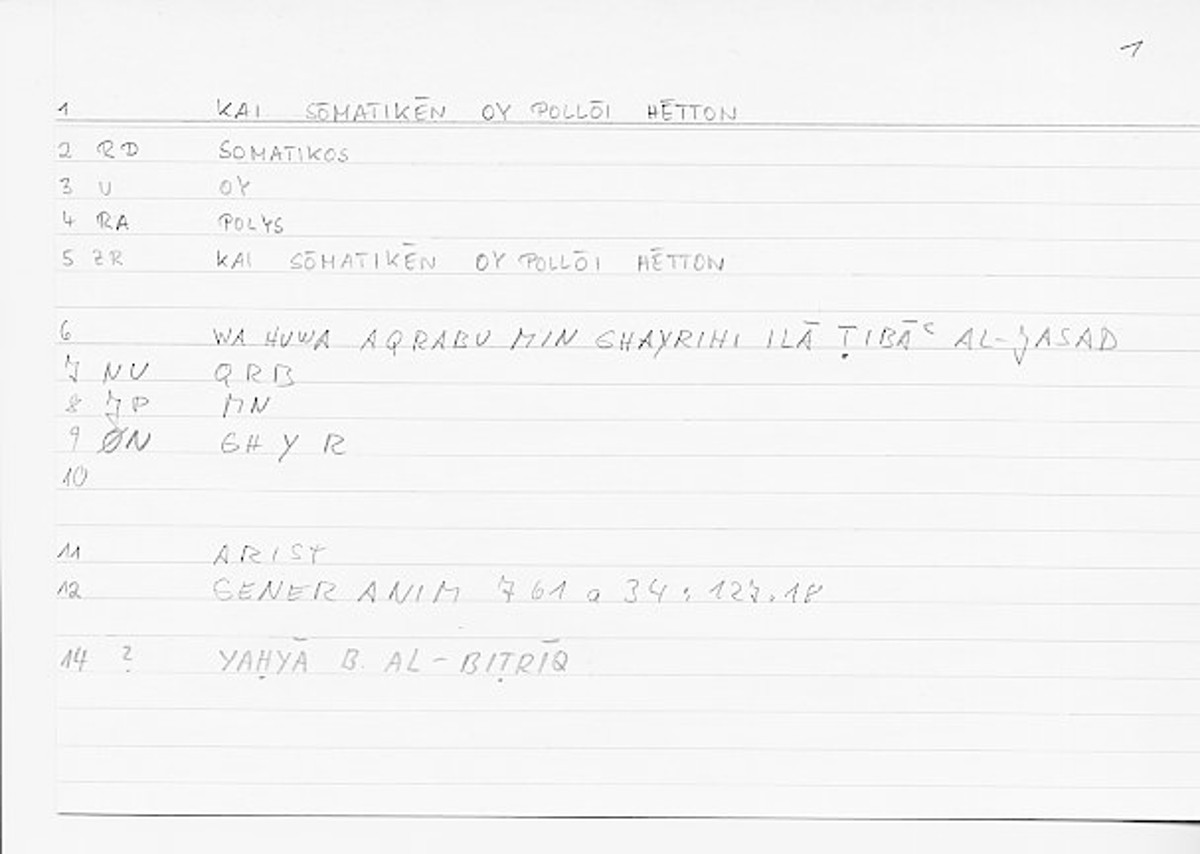 1
1 KAI SŌMATIKĒN OY POLLŌI HĒTTON
2 RD SOMATIKOS
3 U OY
4 RA POLYS
5 ZR KAI SŌMATIKĒN OY POLLŌI HĒTTON
6 WA HUWA AQRABU MIN GHAYRIHI ILĀ ṬIBĀʿ AL-JASAD
7 NU QRB
8 JP MN
9 ØN GHYR
10
11 ARIST
12 GENER ANIM 761 a 34 : 127.18
14 ? YAḤYĀ B. AL-BIṬRĪQ